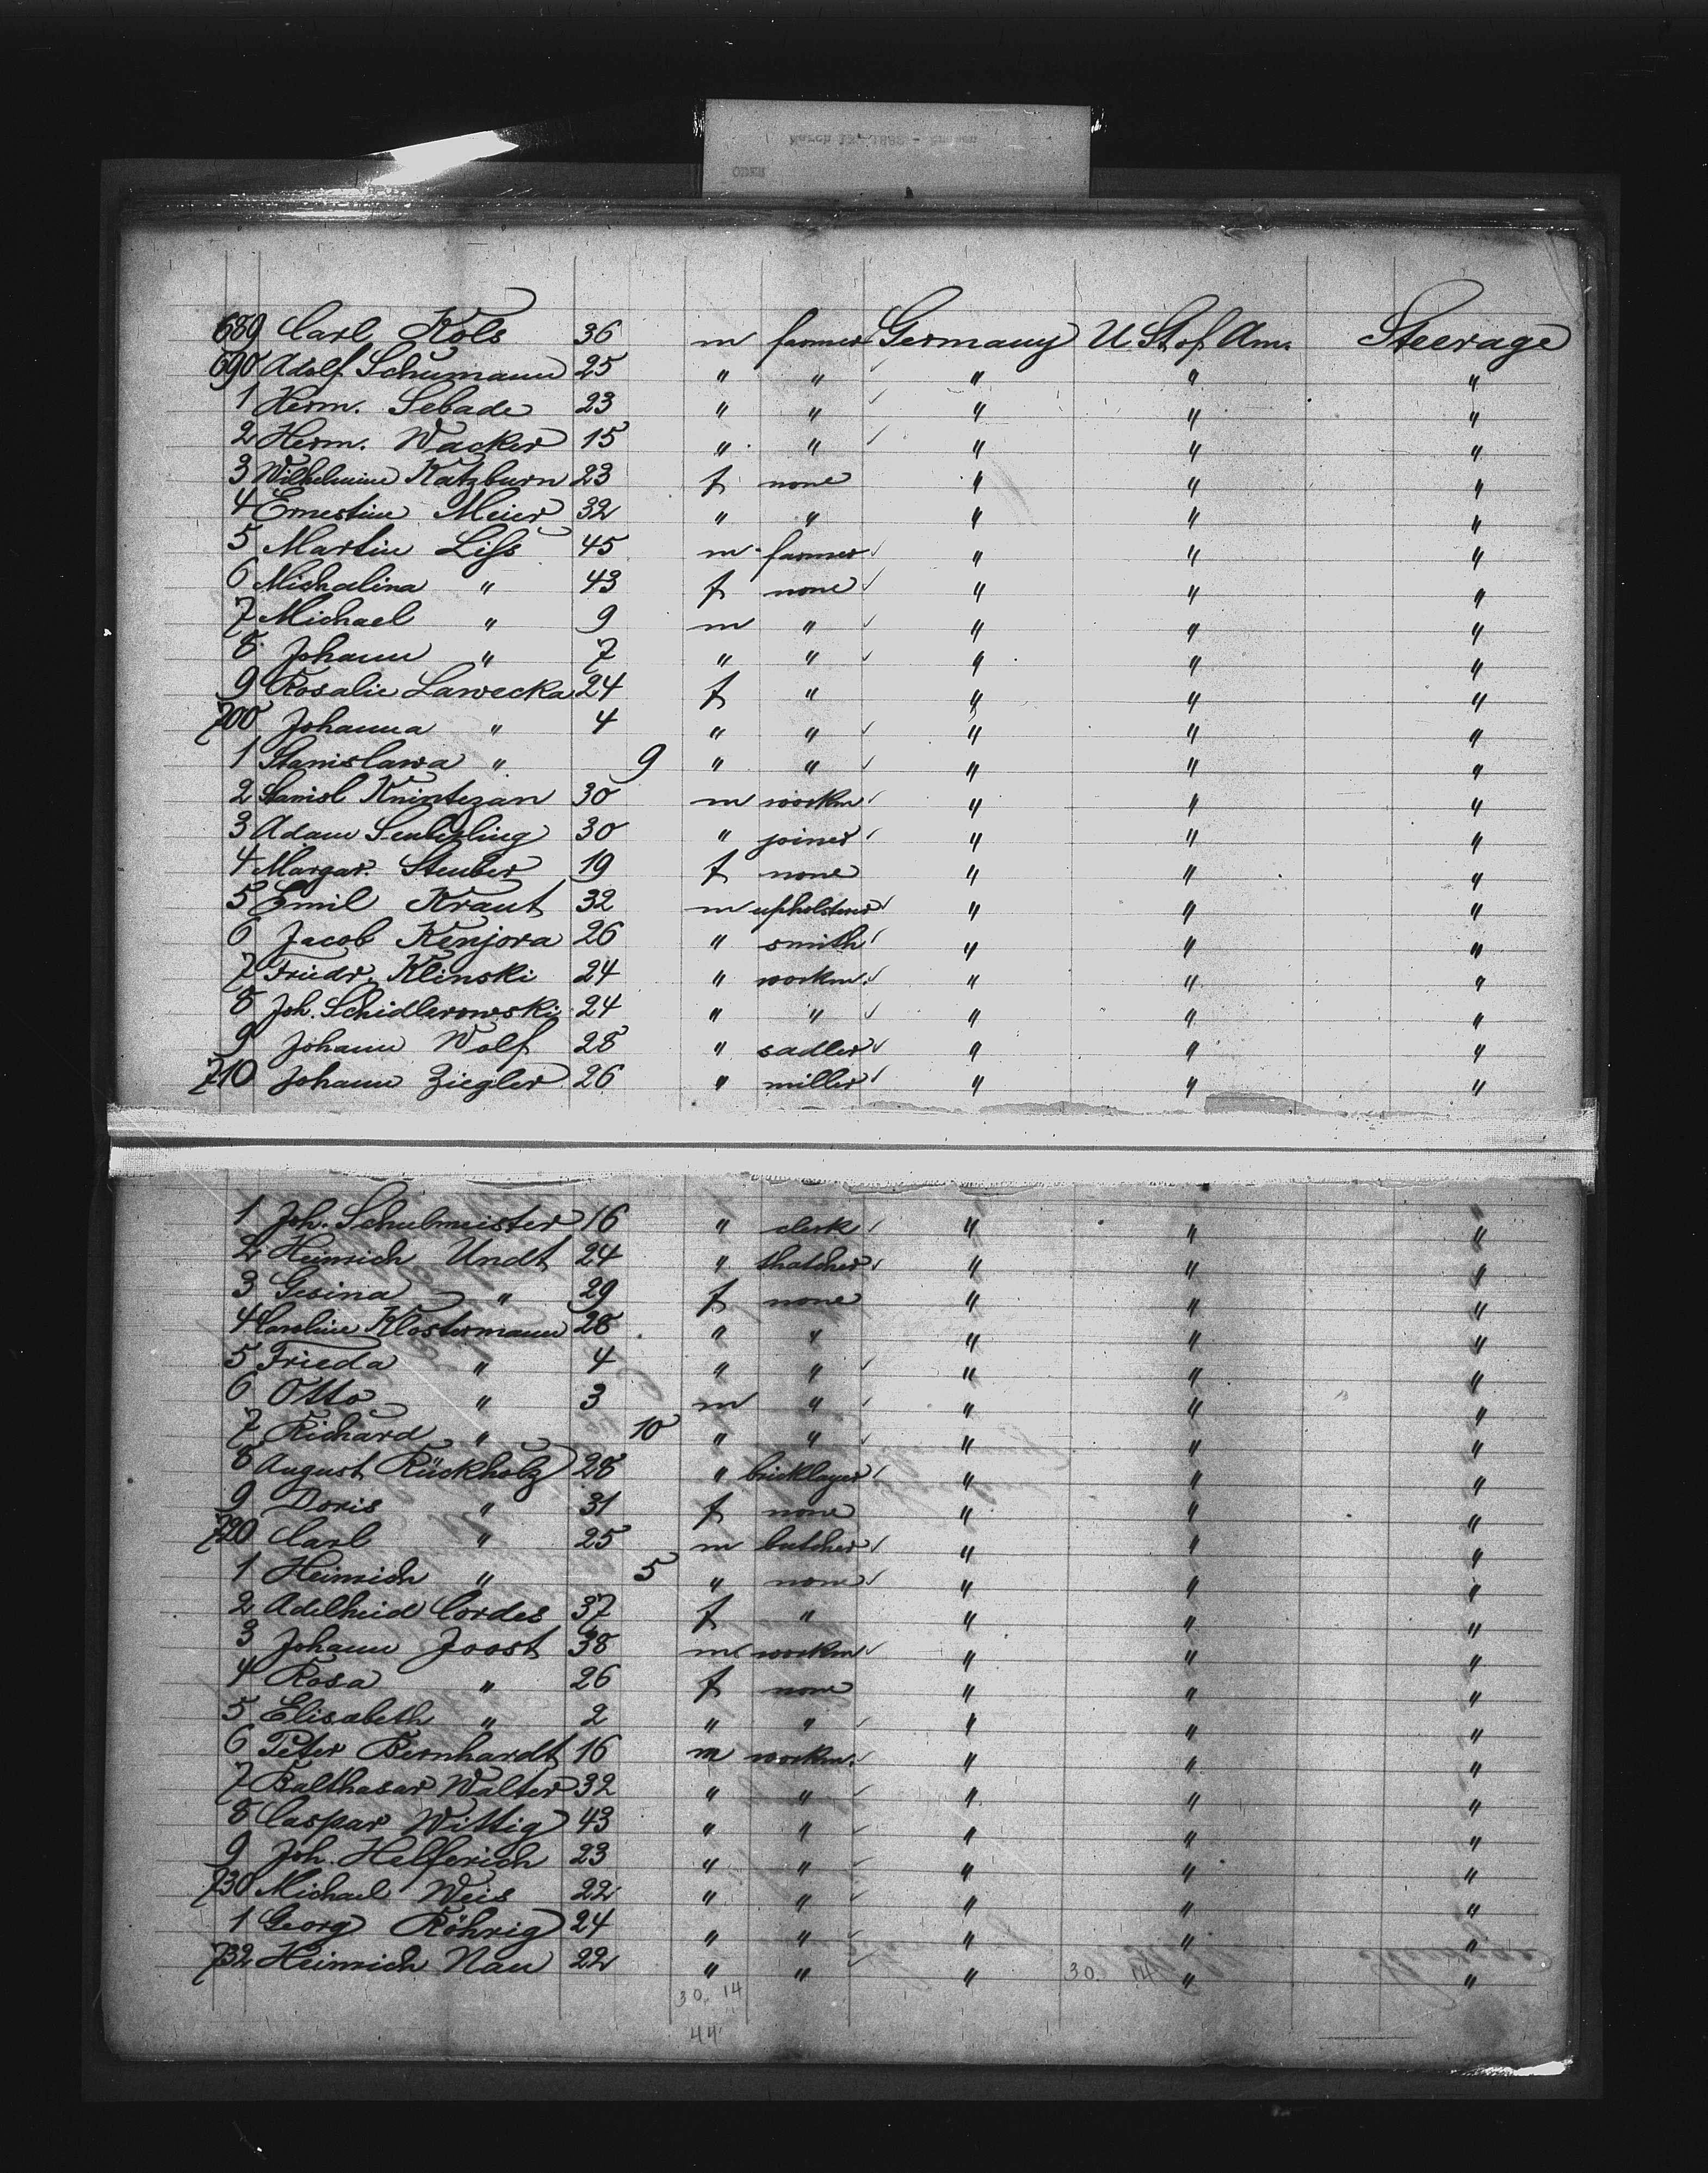 689 Carl Kols 36 m farmer Germany U. St. of Am. Steerage
690 Adolf Schumann 25 " " " " "
1 Herm. Sebade 23 " " " " "
2 Herm. Wacker 15 " " " " "
3 Wilhelmine Katzburn 23 f none " " "
4 Ernestine Meier 32 " " " " "
5 Martin Liss 45 m farmer " " "
6 Michalina " 43 f none " " "
7 Michael " 9 m " " " "
8 Johann " 7 " " " " "
9 Rosalie Lawecka 24 f " " " "
700 Johanna " 4 " " " " "
1 Stanislawa " 9 " " " " "
2 Stanisl 30 m workm " " "
3 Adam 30 " joiner " " "
4 Margar. Steuber 19 f none " " "
5 Emil Kraut 32 m upholsterer " " "
6 Jacob Kenjora 26 " smith " " "
7 Friedr. Klinski 24 " workm. " " "
8 Joh. Schidlerowski 24 " " " " "
9 Johann Wolf 28 " sadler " " "
710 Johann Ziegler 26 " miller " " "
1 Joh. Schulmeister 16 " clerk " " "
2 Heinrich Undt 24 " thatcher " " "
3 Gesina " 29 f none " " "
4 Caroline Klostermann 28 " " " " "
5 Frieda " 4 " " " " "
6 Otto " 3 m " " " "
7 Richard " 10 " " " " "
8 August Rückholz 28 " bricklayer " " "
9 Doris " 31 f none " " "
720 Carl " 25 m butcher " " "
1 Heinrich " 5 " none " " "
2 Adelheid Cordes 37 f " " " "
3 Johann Joost 38 m workm " " "
4 Rosa " 26 f none " " "
5 Elisabeth " 2 " " " " "
6 Peter Bernhardt 16 m workm. " " "
7 Balthasar Walter 32 " " " " "
8 Caspar Wittig 43 " " " " "
9 Joh. Helferich 23 " " " " "
730 Michael Weis 22 " " " " "
1 Georg Röhrig 24 " " " " "
732 Heinrich Nau 22 " " " " "
30 14
30. 14
44